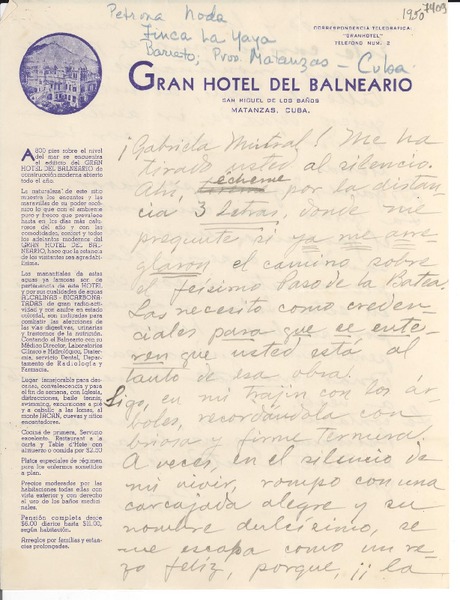 1950
1403
Petrona Noda
Finca La Yaya
Barreto; Prov. Matanzas - Cuba
CORRESPONDENCIA TELEGRAFICA:
"GRANHOTEL"
TELEFONO NUM. 2
GRAN HOTEL DEL BALNEARIO
SAN MIGUEL DE LOS BAÑOS
MATANZAS, CUBA.
A 800 pies sobre el nivel
del mar se encuentra
el edificio del GRAN
HOTEL DEL BALNEARIO
de construcción moderna abierto
todo el año.
La naturaleza de este sitio
muestra los encantos y las
maravillas de su poder soñado
lo que con el ambiente
puro y fresco que prevalece
hasta en los días más calurosos
del año y con las
comodidades, confort y todos
los adelantos modernos del
GRAN HOTEL DEL BALNEARIO,
hace que la estancia
de los visitantes sea agradabilísima.
Los manantiales de estas
aguas ya famosas son de
pertenencia de este HOTEL
y por sus cualidades de aguas
ALCALINAS - BICARBONATADAS
de gran radio-actividad
y por surgir en estado
coloidal, son indicadas para
combatir las afecciones de
las vías digestivas, urinarias
y trastornos de la nutrición.
Contando el Balneario con su
Médico Director, Laboratorios
Clínico e Hidrológico, Diatermia,
servicio Dental, Departamento
de Radiología y
Farmacia.
Lugar inmejorable para descanso,
convalescencia y para
el fin de semana, con Iglesia,
distracciones, baño tennis,
swimming, excursiones a pié
y a caballo a las lomas, al
monte JACAN, cuevas y otros
sitios.
Cocina de primera, Servicio
excelente. Restaurant a la
Carta y Table d'Hote con
almuerzo o comida por $2.00
Platos especiales de régimen
para los enfermos sometidos a
plan.
Precios moderados por las
habitaciones todas ellas con
vista exterior y con derecho
al uso de los baños medicinales.
Pensión completa desde
$6.00 diarios hasta $12.00,
según habitación.
Arreglos por familias y estancias
prolongadas.
¡Gabriela Mistral! Me ha
tirado usted al silencio.
Ahí, écheme por la distan
cia 3 letras, donde me
pregunte si ya me arre
glaron el camino sobre
fesísimo Paso de la Batea.
Las necesito como creden
ciales para que se ente
ren que usted está al
tanto de esa obra.
Sigo, en mi trajín con los ár
boles, recordándola con
briosa y firme ternura.
A veces, en el silencio de
mi vivir, rompo con una
carcajada alegre y su
nombre dulcísimo, se
me escapa como un re
zo feliz, porque, ¡¡ la